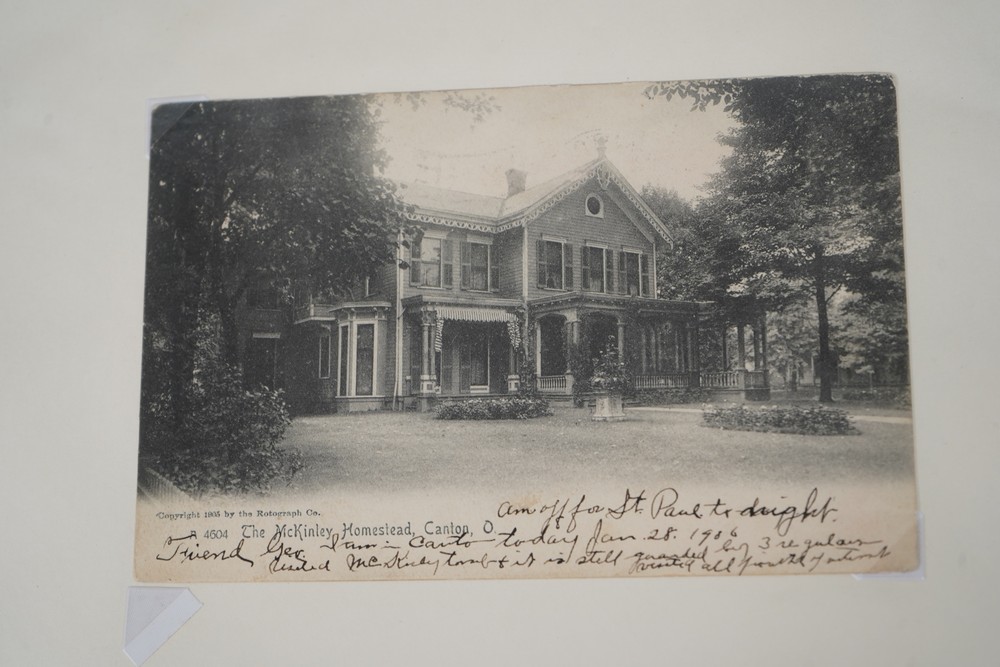 am off for St. Paul to night.
Copyright 1905 by the Rotograph Co.
A 4604 The McKinley Homestead, Canton, O.
Friend Geo. I am in Canton today Jan. 28. 1906
visited McKinley tomb & it is still guarded by 3 regulars
visited all points of